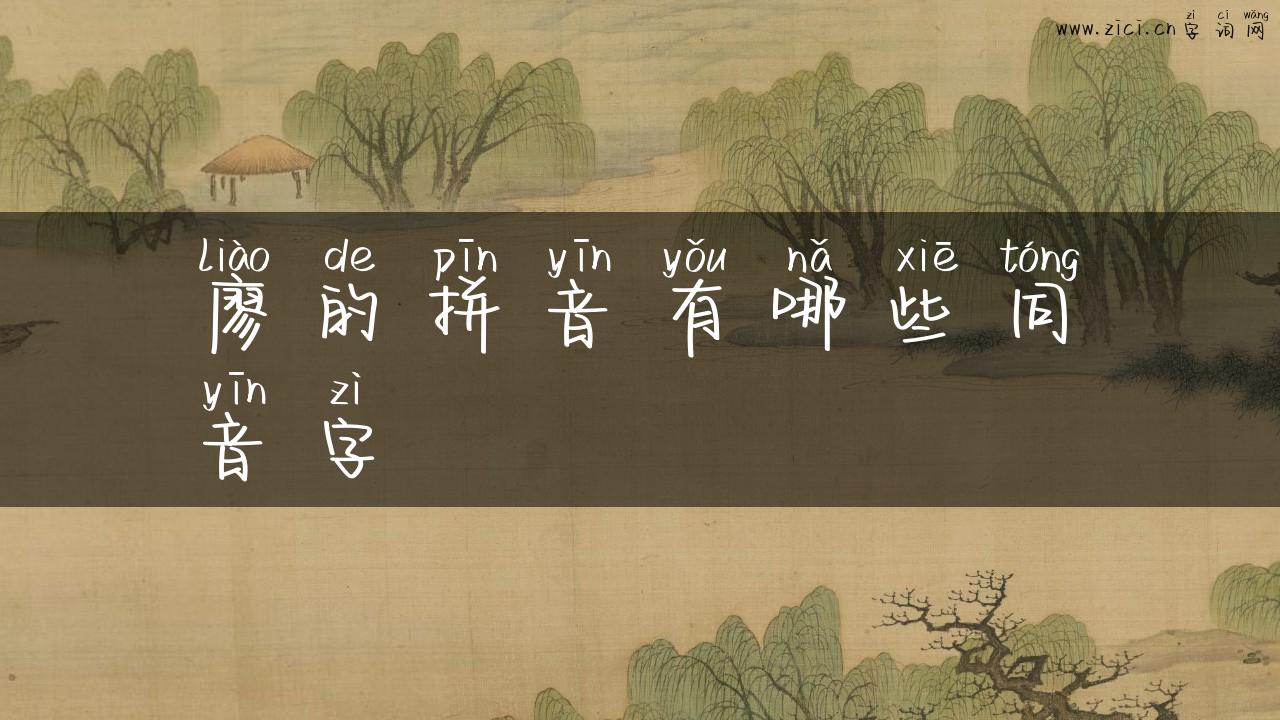 zì cí wǎng
www.zici.cn 字词网
liào de pīn yīn yǒu nǎ xiē tóng
廖的拼音有哪些同
yīn zì
音字